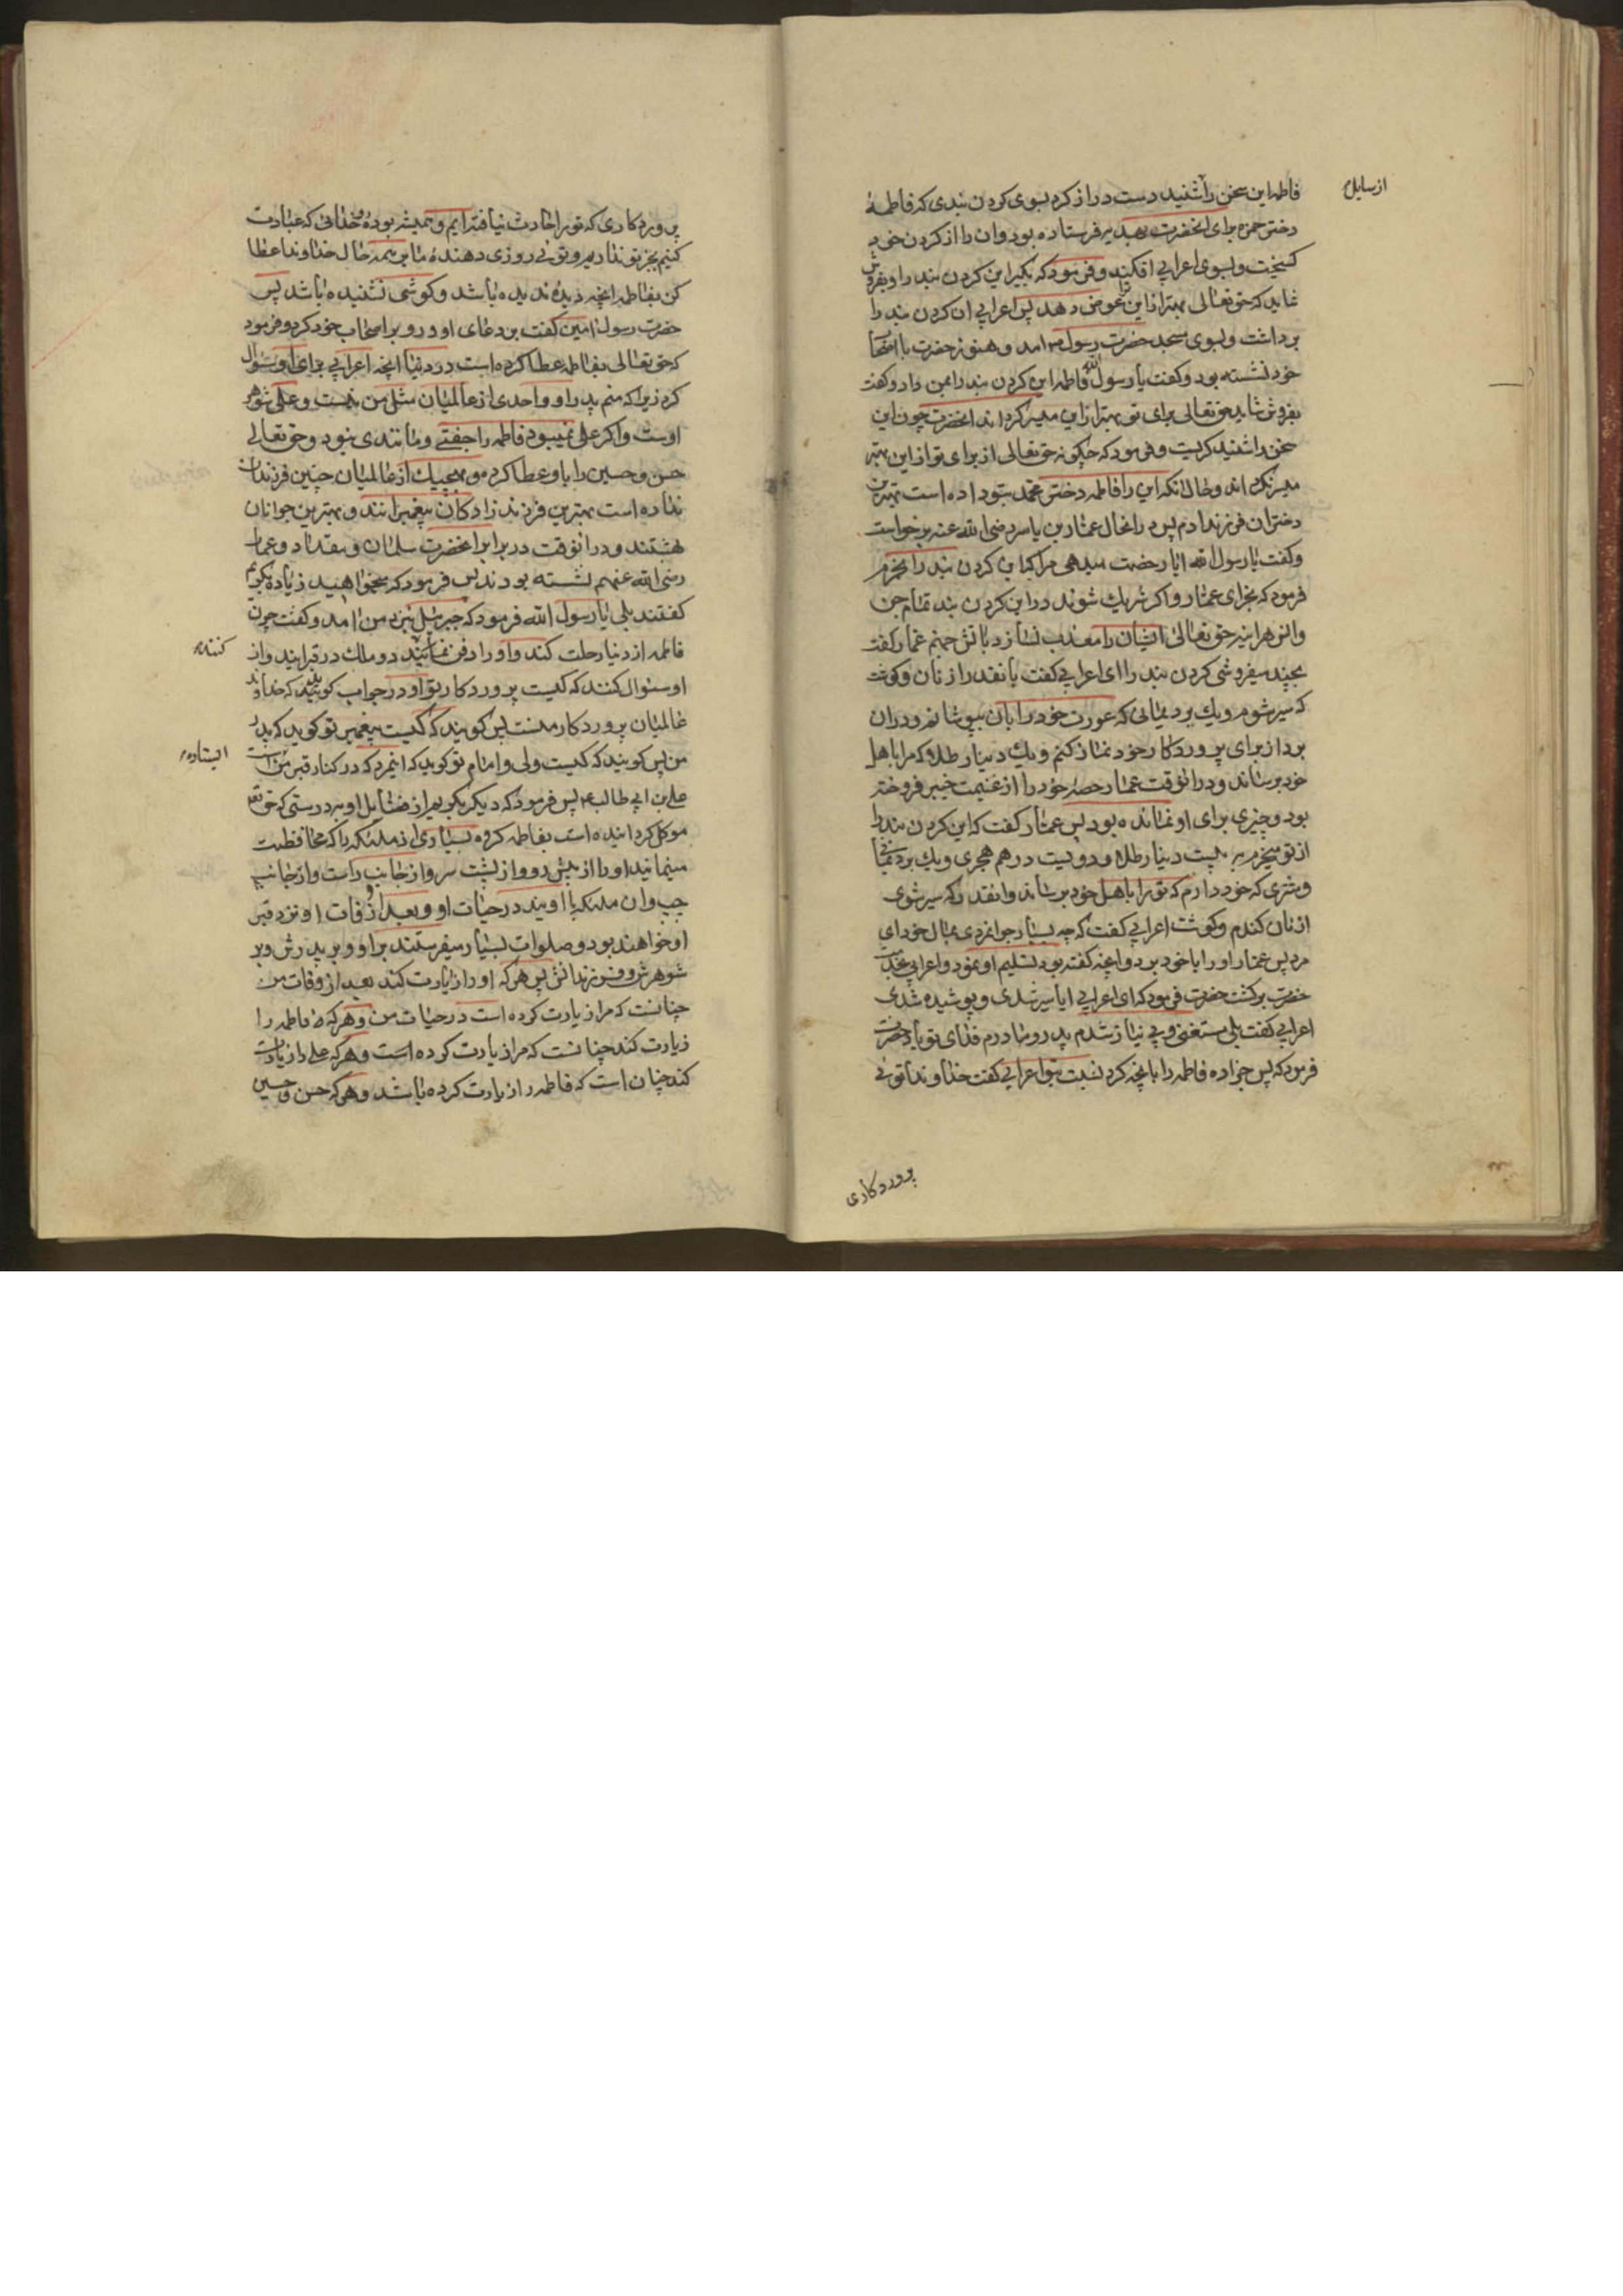 فاطمه این سخن را شنید دست دراز کرد بسوی کردن بندی که فاطمهٔ
از سایل
دختر حمزه برای انحضرت بهدیه فرستاده بود وان را از کردن خود
کسیخت و بسوی اعرابی افکند و فرمود که بکیر این کردن بند را و بفروش
شاید که حق تعالی بهتر از این ترا عوض دهد پس اعرابی ان کردن بند را
برداشت و بسوی مسجد حضرت رسول امد و هنوز حضرت با اصحاب
خود نشسته بود و کفت یا رسول الله فاطمه این کردن بند را بمن داد و کفت
بفروش شاید حق تعالی برای تو بهتر از این میسر کرداند انحضرت چون این
سخن را شنید کریست و فرمود که چکونه حق تعالی از برای تو از این بهتر
میسر نکرداند و حال انکه این را فاطمه دختر محمد بتو داده است بهترین
دختران فرزند ادم پس در انحال عمار بن یاسر رضی الله عنه برخواست
و کفت یا رسول الله ایا رخصت میدهی مرا که این کردن بند را بخرم
فرمود که بخر ای عمار و اکر شریک شوند در این کردن بند تمام جن
و انس هراینه حق تعالی ایشان را معذب نسازد باتش جهنم عمار کفت
بچند میفروشی کردن بند را ای اعرابی کفت بانقدر از نان و کوشت
که سیر شوم و یک برد یمانی که عورت خود را بان بپوشانم و در ان
برد از برای پروردکار خود نماز کنم و یک دینار طلا که مرا باهل
خود برساند و در انوقت عمار حصهٔ خود را از غنیمت خیبر فروخته
بود و چیزی برای او نمانده بود پس عمار کفت که این کردن بند را
از تو میخرم به بیست دینار طلا و دویست درهم هجری و یک برد یمانی
و شتری که خود دارم که تو را باهل خود برساند و انقدر که سیر شوی
از نان کندم و کوشت اعرابی کفت که چه بسیار جوانمردی بمال خود ای
مرد پس عمار او را با خود برد و انچه کفته بود تسلیم او نمود و اعرابی بخدمت
حضرت برکشت حضرت فرمود که ای اعرابی ایا سیر شدی و پوشیده شدی
اعرابی کفت بلی مستغنی و بی نیاز شدم پدر و مادرم فدای تو باد حضرت
فرمود که پس جزا ده فاطمه را بانچه کرد نسبت بتو اعرابی کفت خداوندا توئی
پروردکاری
پروردکاری که تو را حادث نیافته ایم و همیشه بوده و خدائی که عبادت
کنیم بجز تو نداریم و توئی روزی دهندهٔ ما بر همه حال خداوندا عطا
کن بفاطمه انچه دیدهٔ ندیده باشد و کوشی نشنیده باشد پس
حضرت رسول امین کفت بر دعای او و رو بر اصحاب خود کرد و فرمود
که حق تعالی بفاطمه عطا کرده است در دنیا انچه اعرابی برای او سئوال
کرد زیرا که منم پدر او و احدی از عالمیان مثل من نیست و علی شوهر
اوست و اکر علی نمیبود فاطمه را جفتی و مانندی نبود و حق تعالی
حسن و حسین را باو عطا کرد و بهیچیک از عالمیان چنین فرزندان
نداده است بهترین فرزند زادکان پیغمبرانند و بهترین جوانان
بهشتند و در انوقت در برابر انحضرت سلمان و مقداد و عمار
رضی الله عنهم نشسته بودند پس فرمود که میخواهید زیاده بکویم
کفتند بلی یا رسول الله فرمود که جبرئیل بنزد من امد و کفت چون
فاطمه از دنیا رحلت کند و او را دفن نمایند دو ملک در قبر ایند و از
کننده
او سئوال کنند که کیست پروردکار تو او در جواب کوید که خداوند
عالمیان پروردکار منست پس کویند که کیست پیغمبر تو کوید که پدر
من پس کویند که کیست ولی و امام تو کوید که اینمرد که در کنار قبر من است
ایستاده
علی بن ابی طالب پس فرمود که دیکر بکویم از فضایل او بدرستی که حق تعالی
موکل کردانیده است بفاطمه کروه بسیاری از ملئکه را که محافظت
مینمایند او را از پیش رو و از پشت سر و از جانب راست و از جانب
چپ وان ملئکه با اویند در حیات او و بعد از وفات او نزد قبر
او خواهند بود و صلوات بسیار میفرستند بر او و بر پدرش و بر
شوهرش و فرزندانش پس هرکه او را زیارت کند بعد از وفات من
چنانست که مرا زیارت کرده است در حیات من و هرکه فاطمه را
زیارت کند چنانست که مرا زیارت کرده است و هرکه علی را زیارت
کند چنان است که فاطمه را زیارت کرده باشد و هرکه حسن و حسین